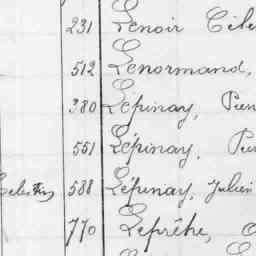 231 Lenoir Céle
512 Lenormand,
380 Lépinay, Pier
551 Lépinay, Pie
588 Lépinay, Julien
770 Leprêtre,